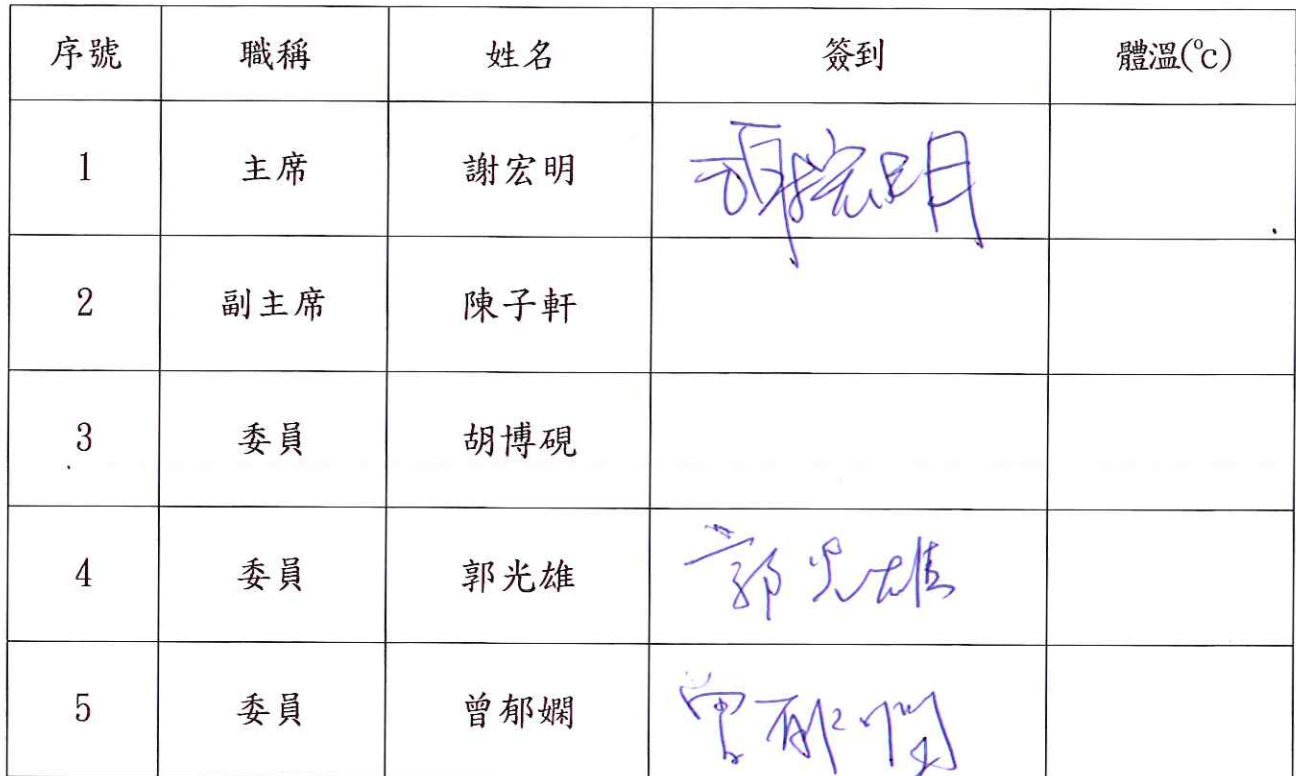 序號 職稱 姓名 簽到 體溫(℃)
1 主席 謝宏明 謝宏明
2 副主席 陳子軒
3 委員 胡博硯
4 委員 郭光雄 郭光雄
5 委員 曾郁嫻 曾郁嫻